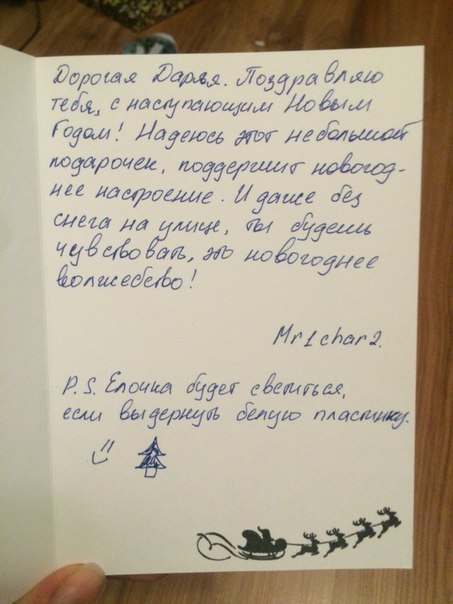 Дорогая Дарья. Поздравляю
тебя, с наступающим Новым
Годом! Надеюсь этот небольшой
подарочек, поддержит новогод-
нее настроение. И даже без
снега на улице, ты будешь
чувствовать, это новогоднее
волжебство!
Mr1char2.
P.S. Елочка будет светиться,
если выдернуть белую пластинку.